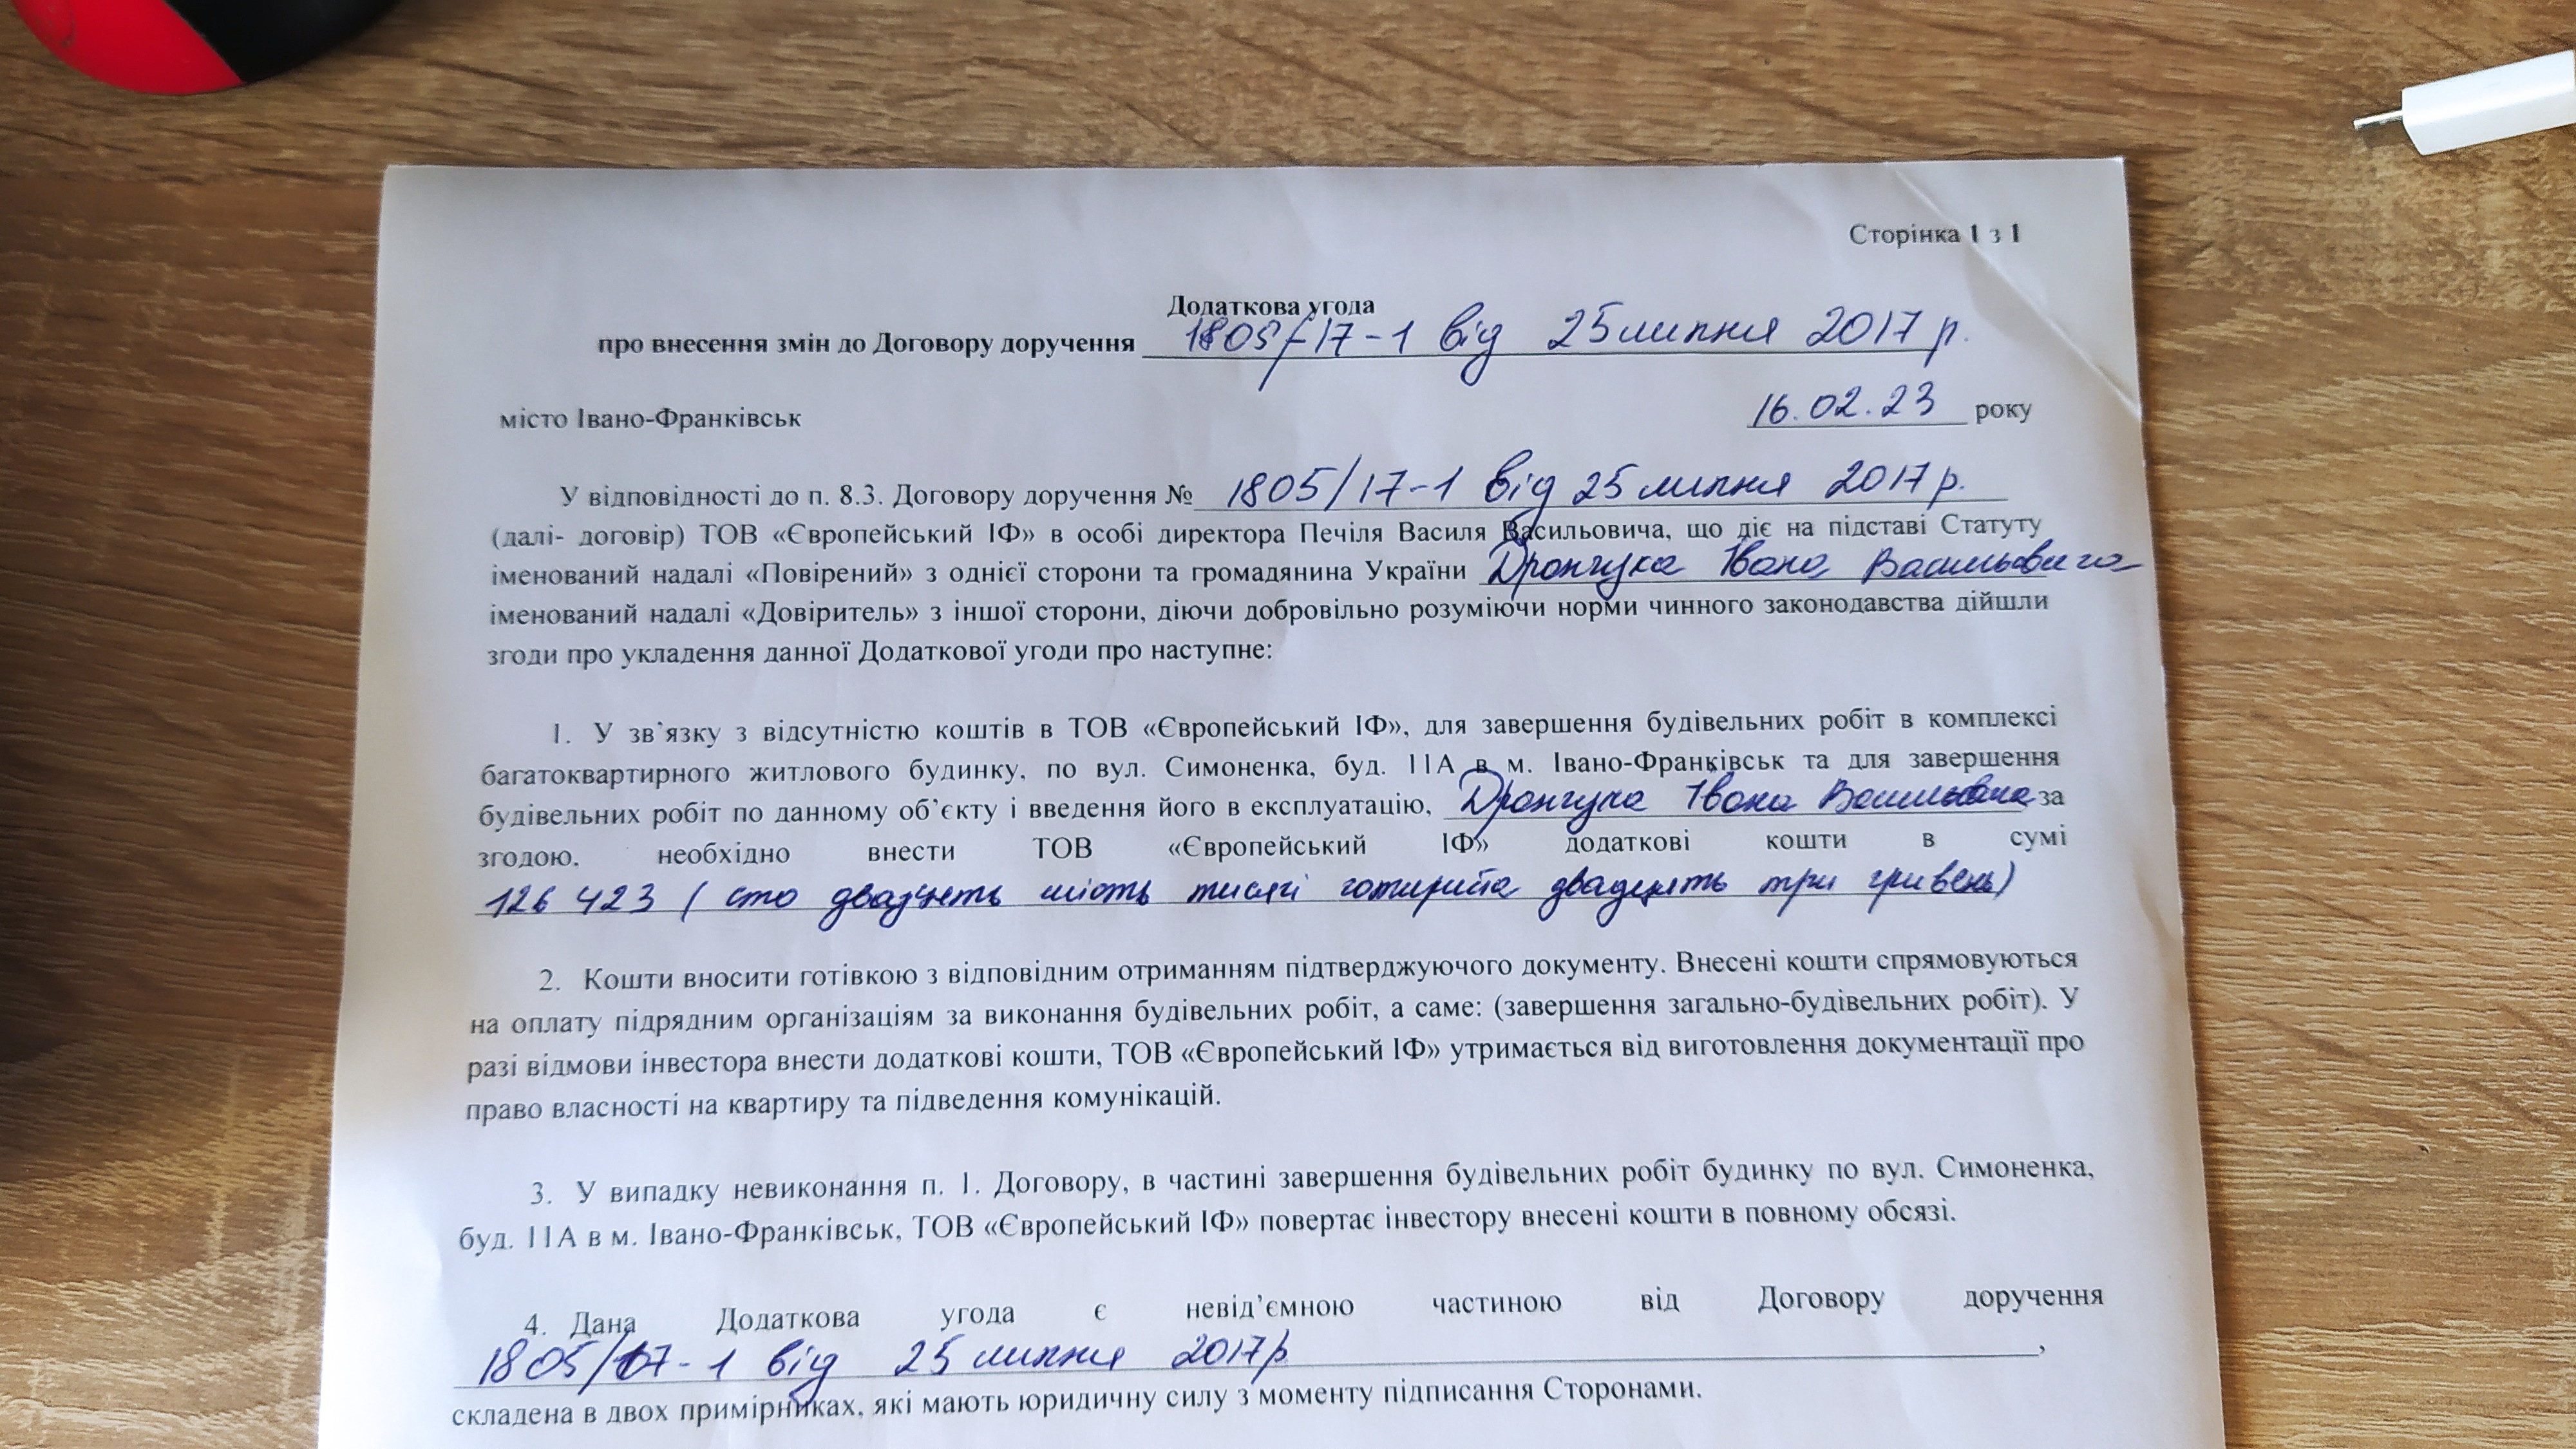 Сторінка 1 з 1
Додаткова угода
про внесення змін до Договору доручення 1805/17-1 від 25 липня 2017 р.
місто Івано-Франківськ 16.02.23 року
У відповідності до п. 8.3. Договору доручення № 1805/17-1 від 25 липня 2017 р.
(далі- договір) ТОВ «Європейський ІФ» в особі директора Печіля Василя Васильовича, що діє на підставі Статуту
іменований надалі «Повірений» з однієї сторони та громадянина України Дрончука Івана Васильовича
іменований надалі «Довіритель» з іншої сторони, діючи добровільно розуміючи норми чинного законодавства дійшли
згоди про укладення данної Додаткової угоди про наступне:
1. У зв`язку з відсутністю коштів в ТОВ «Європейський ІФ», для завершення будівельних робіт в комплексі
багатоквартирного житлового будинку, по вул. Симоненка, буд. 11А в м. Івано-Франківськ та для завершення
будівельних робіт по данному об`єкту і введення його в експлуатацію, Дрончука Івана за
згодою, необхідно внести ТОВ «Європейський ІФ» додаткові кошти в сумі
126 423 (сто двадцять шість тисяч чотириста двадцять три гривень)
2. Кошти вносити готівкою з відповідним отриманням підтверджуючого документу. Внесені кошти спрямовуються
на оплату підрядним організаціям за виконання будівельних робіт, а саме: (завершення загально-будівельних робіт). У
разі відмови інвестора внести додаткові кошти, ТОВ «Європейський ІФ» утримається від виготовлення документації про
право власності на квартиру та підведення комунікацій.
3. У випадку невиконання п. 1. Договору, в частині завершення будівельних робіт будинку по вул. Симоненка,
буд. 11А в м. Івано-Франківськ, ТОВ «Європейський ІФ» повертає інвестору внесені кошти в повному обсязі.
4. Дана Додаткова угода є невід'ємною частиною від Договору доручення
1805/17-1 від 25 липня 2017р ,
складена в двох примірниках, які мають юридичну силу з моменту підписання Сторонами.